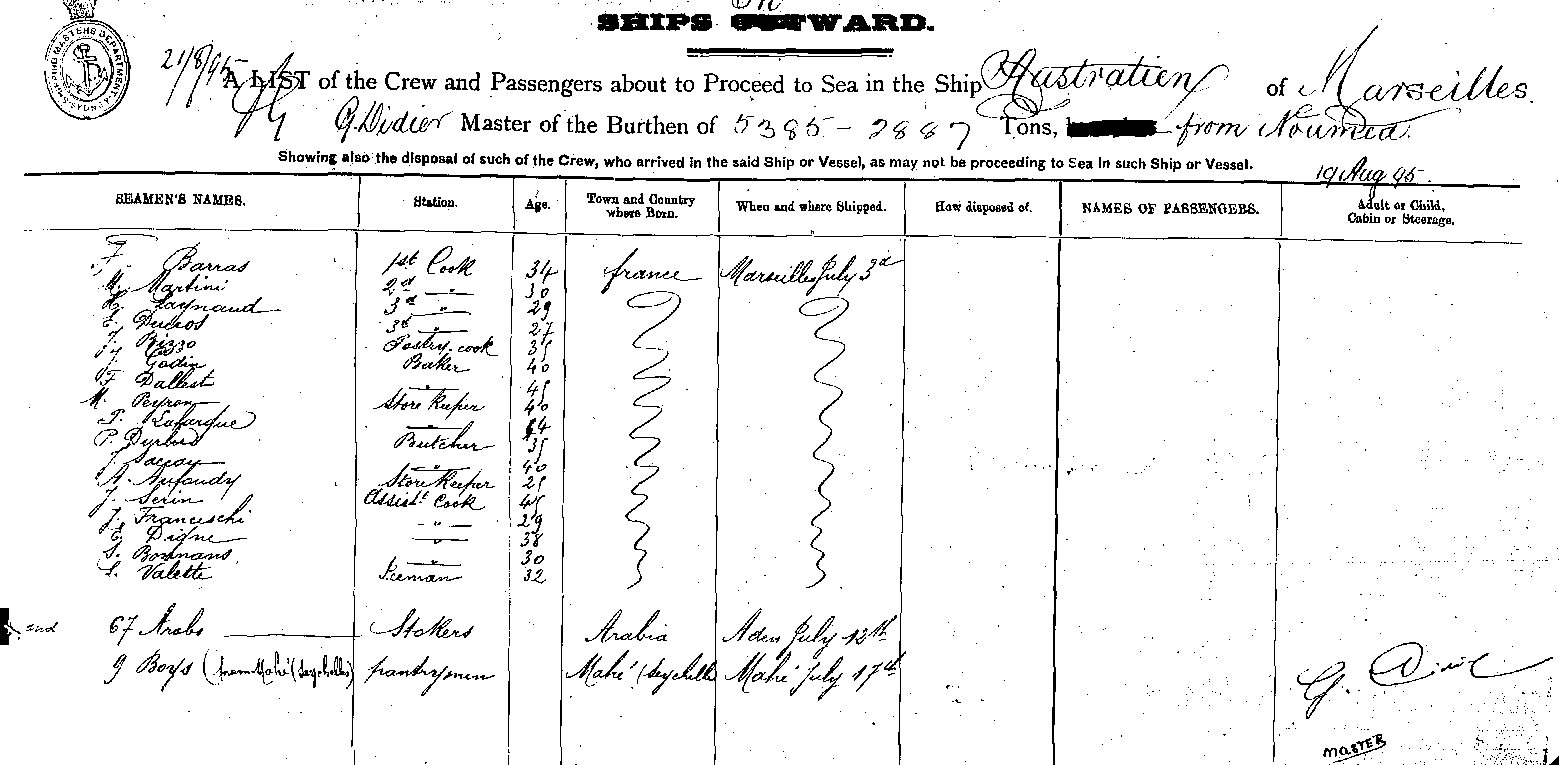 In
SHIPS OUTWARD.
SHIPPING MASTERS DEPARTMENT SYDNEY
21/8/95
A LIST of the Crew and Passengers about to Proceed to Sea in the Ship Australien of Marseilles.
G. Didier Master of the Burthen of 5385 - 2887 Tons, from Noumea.
Showing also the disposal of such of the Crew, who arrived in the said Ship or Vessel, as may not be proceeding to Sea in such Ship or Vessel.
19 Aug 95.
SEAMEN'S NAMES. Station. Age. Town and Country where Born. When and where Shipped. How disposed of. NAMES OF PASSENGERS. Adult or Child, Cabin or Steerage.
F. Barras 1st Cook 34 france Marseille July 3d
M. Martini 2d " 30
Raynaud 3d " 29
E. Ducros 3d " 27
J. Bizzo Pastry-cook 35
Gadin Baker 40
F. Dallest " 45
M. Peyron Store Keeper 40
Lafargue " 44
P. Butcher 35
J. " 40
A. Aufaudy Store Keeper 25
J. Serin Assist. Cook 45
J. Franceschi " 29
E. Digne " 38
S. Bonnans " 30
L. Valette Seeman 32
2nd 67 Arabs Stokers Arabia Aden July 12th
9 Boys (from Mahé (Seychelles) pantrymen Mahé (Seychelle Mahé July 17th
G. Didier
MASTER